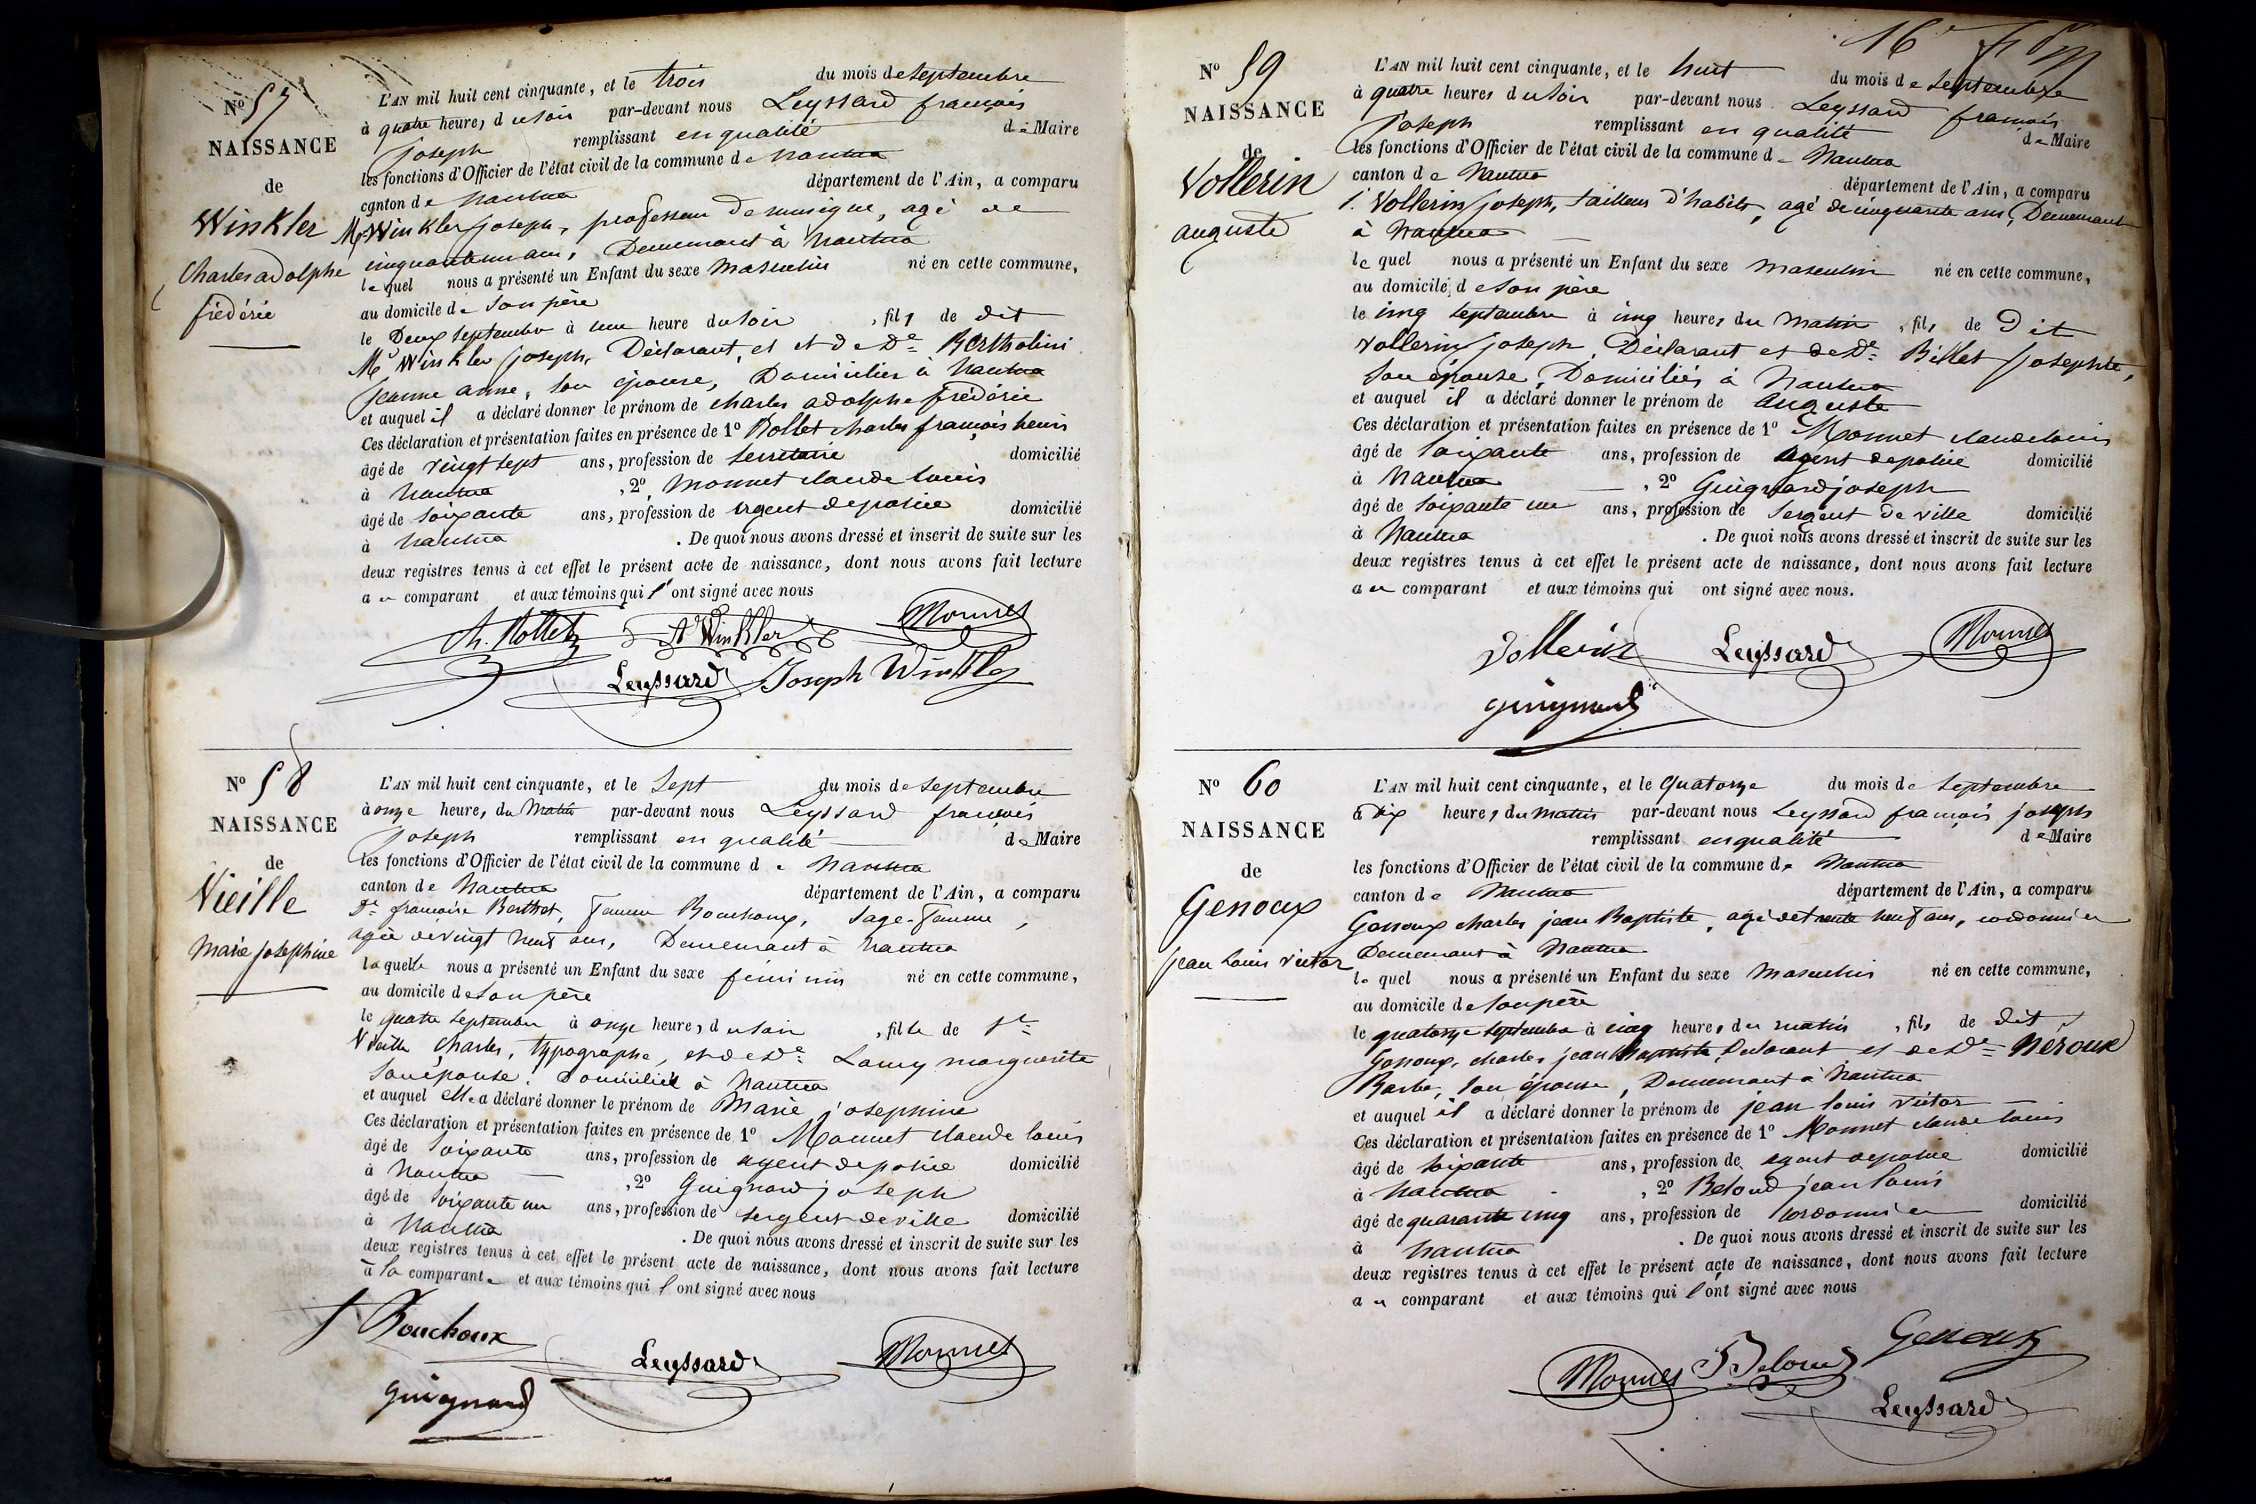 N° 57
NAISSANCE
de
Winkler
Charles adolphe
frédéric
L'AN mil huit cent cinquante, et le trois du mois de septembre
à quatre heures du soir par-devant nous Leyssard françois
joseph remplissant en qualité de Maire
les fonctions d'Officier de l'état civil de la commune de Nantua
canton de Nantua département de l'Ain, a comparu
Mr Winkler joseph, professeur de musique, agé de
cinquante un ans, Demeurant à Nantua
lequel nous a présenté un Enfant du sexe masculin né en cette commune,
au domicile de son père
le Deux septembre à une heure du soir, fils de dit
Mr Winkler joseph, Déclarant, et et de De Bertholini
jeanne anne, son épouse, Domiciliés à Nantua
et auquel il a déclaré donner le prénom de charles adolphe frédéric
Ces déclaration et présentation faites en présence de 1° Rollet charles françois henri
âgé de vingt sept ans, profession de secrétaire domicilié
à Nantua, 2° Monnet claude louis
âgé de soixante ans, profession de agent de police domicilié
à Nantua. De quoi nous avons dressé et inscrit de suite sur les
deux registres tenus à cet effet le présent acte de naissance, dont nous avons fait lecture
au comparant et aux témoins qui l'ont signé avec nous
Ch. Rollet Ae Winkler Monnet
Leyssard Joseph Winkler
N° 58
NAISSANCE
de
Vieille
Marie josephine
L'AN mil huit cent cinquante, et le sept du mois de septembre
à onze heures du matin par-devant nous Leyssard françois
joseph remplissant en qualité de Maire
les fonctions d'Officier de l'état civil de la commune de Nantua
canton de Nantua département de l'Ain, a comparu
De françoise Berthet, femme Bouchoux, sage-femme,
agée de vingt neuf ans, Demeurant à Nantua
laquelle nous a présenté un Enfant du sexe féminin né en cette commune,
au domicile de son père
le quatre septembre à onze heures du soir, fille de Sr
Vieille charles, typographe, et de De Lamy marguerite
son épouse, Domiciliés à Nantua
et auquel elle a déclaré donner le prénom de Marie josephine
Ces déclaration et présentation faites en présence de 1° Monnet claude louis
âgé de soixante ans, profession de agent de police domicilié
à Nantua, 2° Guignard joseph
âgé de soixante un ans, profession de sergent de ville domicilié
à Nantua. De quoi nous avons dressé et inscrit de suite sur les
deux registres tenus à cet effet le présent acte de naissance, dont nous avons fait lecture
à la comparante et aux témoins qui l'ont signé avec nous
f Bouchoux Leyssard Monnet
guignard
16e
N° 59
NAISSANCE
de
Vollerin
auguste
L'AN mil huit cent cinquante, et le huit du mois de septembre
à quatre heures du soir par-devant nous Leyssard françois
joseph remplissant en qualité de Maire
les fonctions d'Officier de l'état civil de la commune de Nantua
canton de Nantua département de l'Ain, a comparu
Vollerin joseph, tailleur d'habits, agé de cinquante ans, Demeurant
à Nantua
lequel nous a présenté un Enfant du sexe masculin né en cette commune,
au domicile de son père
le cinq septembre à cinq heures du matin, fils de Dit
Vollerin joseph, Déclarant et de De Billet josephte,
son épouse, Domiciliés à Nantua
et auquel il a déclaré donner le prénom de auguste
Ces déclaration et présentation faites en présence de 1° Monnet claude louis
âgé de soixante ans, profession de agent de police domicilié
à Nantua, 2° Guignard joseph
âgé de soixante un ans, profession de sergent de ville domicilié
à Nantua. De quoi nous avons dressé et inscrit de suite sur les
deux registres tenus à cet effet le présent acte de naissance, dont nous avons fait lecture
au comparant et aux témoins qui ont signé avec nous.
Vollerin Leyssard Monnet
guignard
N° 60
NAISSANCE
de
Genoux
jean louis victor
L'AN mil huit cent cinquante, et le Quatorze du mois de septembre
à dix heures du matin par-devant nous Leyssard françois joseph
remplissant en qualité de Maire
les fonctions d'Officier de l'état civil de la commune de Nantua
canton de Nantua département de l'Ain, a comparu
Genoux charles jean Baptiste, agé de trente neuf ans, cordonnier
Demeurant à Nantua
lequel nous a présenté un Enfant du sexe masculin né en cette commune,
au domicile de son père
le quatorze septembre à cinq heures du matin, fils de dit
Genoux, charles jean Baptiste, Déclarant et de De Néroux
Barbe, son épouse, Demeurant à Nantua
et auquel il a déclaré donner le prénom de jean louis victor
Ces déclaration et présentation faites en présence de 1° Monnet claude louis
âgé de soixante ans, profession de agent de police domicilié
à Nantua, 2° Beloud jean louis
âgé de quarante cinq ans, profession de cordonnier domicilié
à Nantua. De quoi nous avons dressé et inscrit de suite sur les
deux registres tenus à cet effet le présent acte de naissance, dont nous avons fait lecture
au comparant et aux témoins qui l'ont signé avec nous
Monnet Beloud Genoux
Leyssard